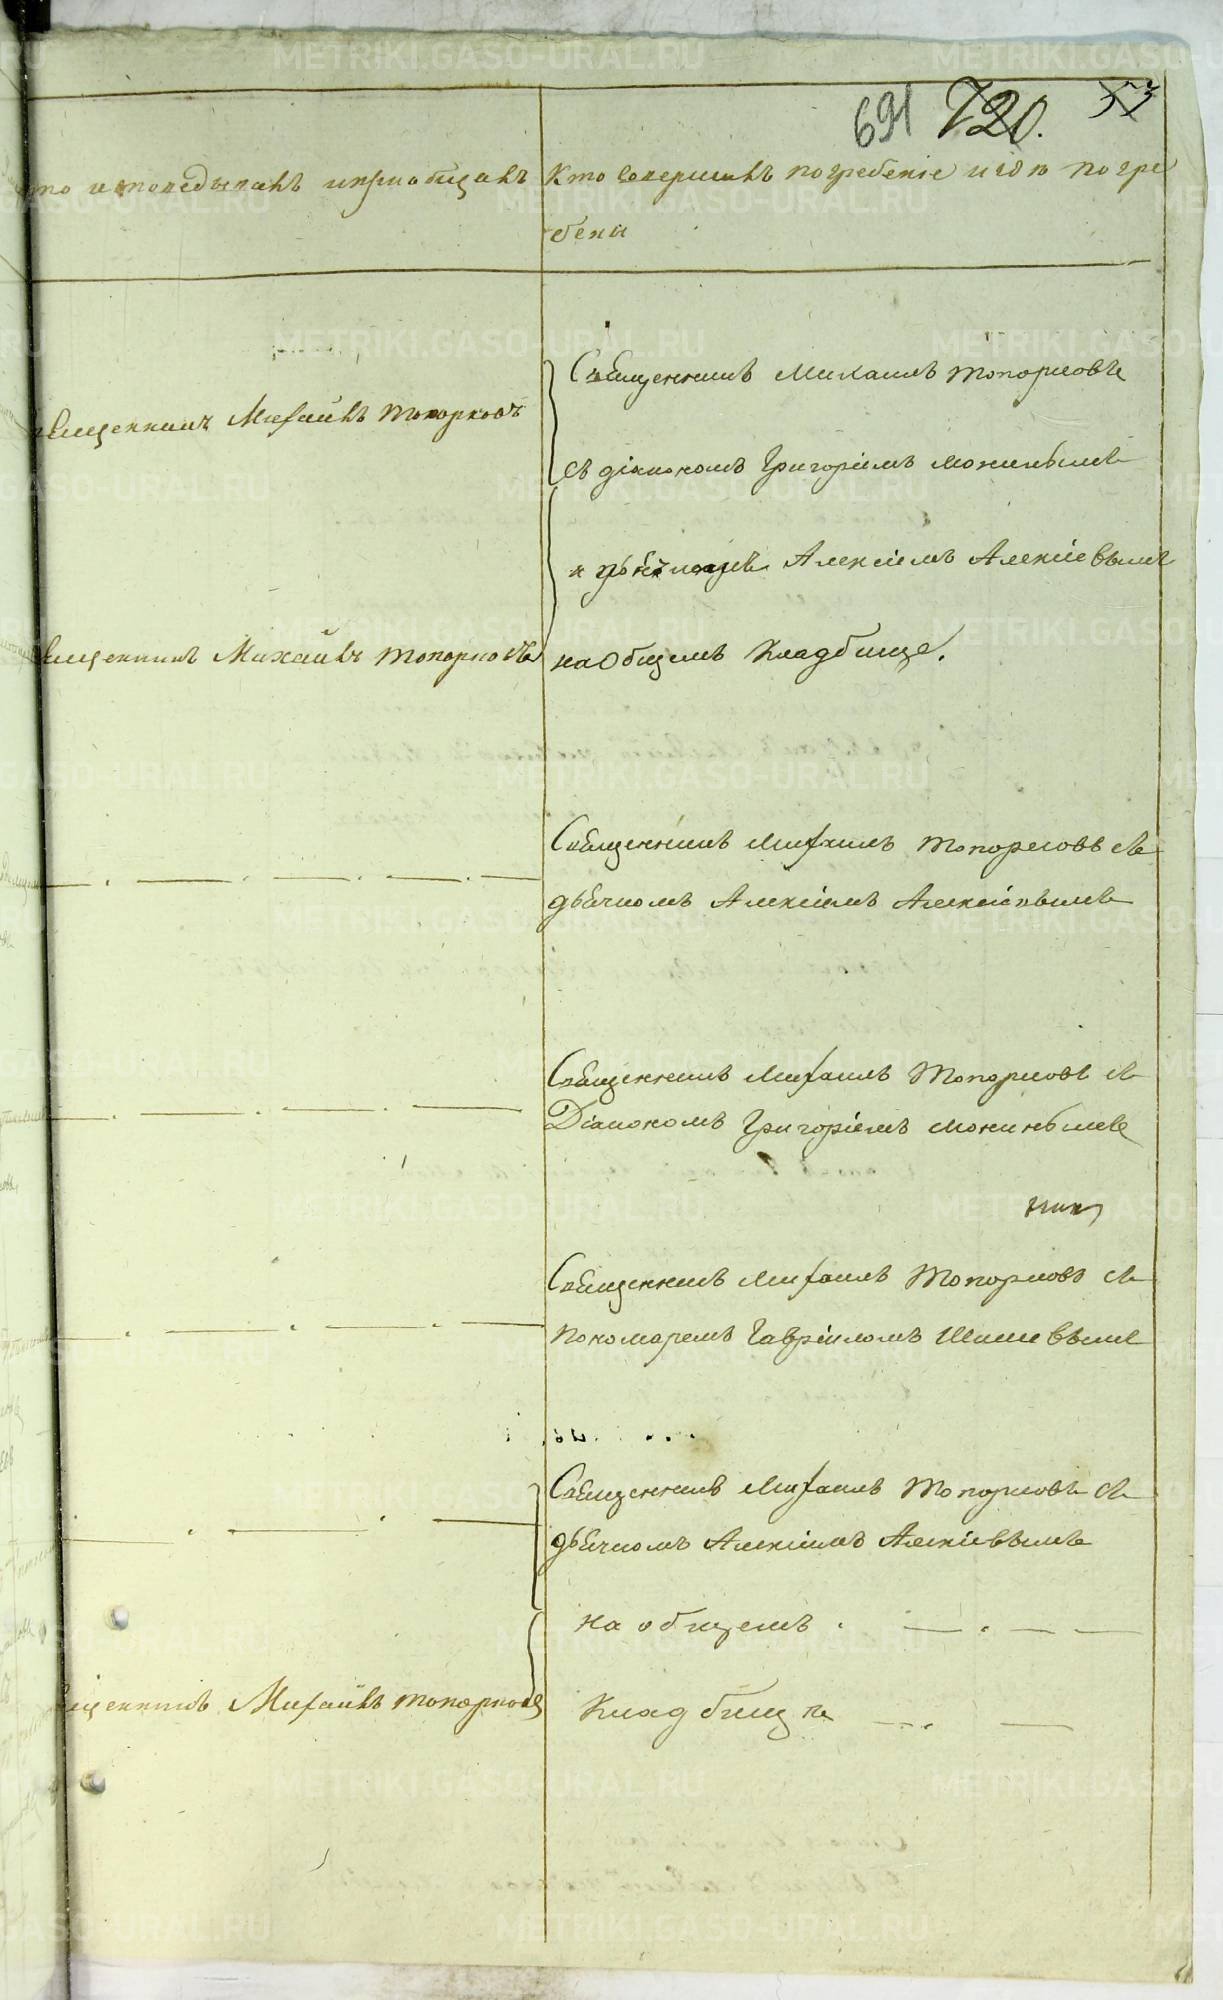 691 720. 53
кто исповедывалъ и приобщалъ
Кто совершалъ погребенiе и где погре
бены
Священникъ Михаилъ Топорковъ
Священникъ Михаилъ Топорковъ
съ дiакономъ Григорiемъ
и Алексiемъ Алексiевымъ
Священникъ Михаилъ Топорковъ
на Общемъ Кладбище.
Священникъ Михаилъ Топорковъ съ
дьячкомъ Алексiемъ Алексiевымъ
Священникъ Михаилъ Топорковъ съ
Дiакономъ Григорiемъ
Священникъ Михаилъ Топорковъ съ
пономаремъ Гаврiиломъ Шишевымъ
Священникъ Михаилъ Топорковъ съ
дьячкомъ Алексiемъ Алексiевымъ
на общемъ
Священникъ Михаилъ Топорковъ
Кладбище
METRIKI.GASO-URAL.RU